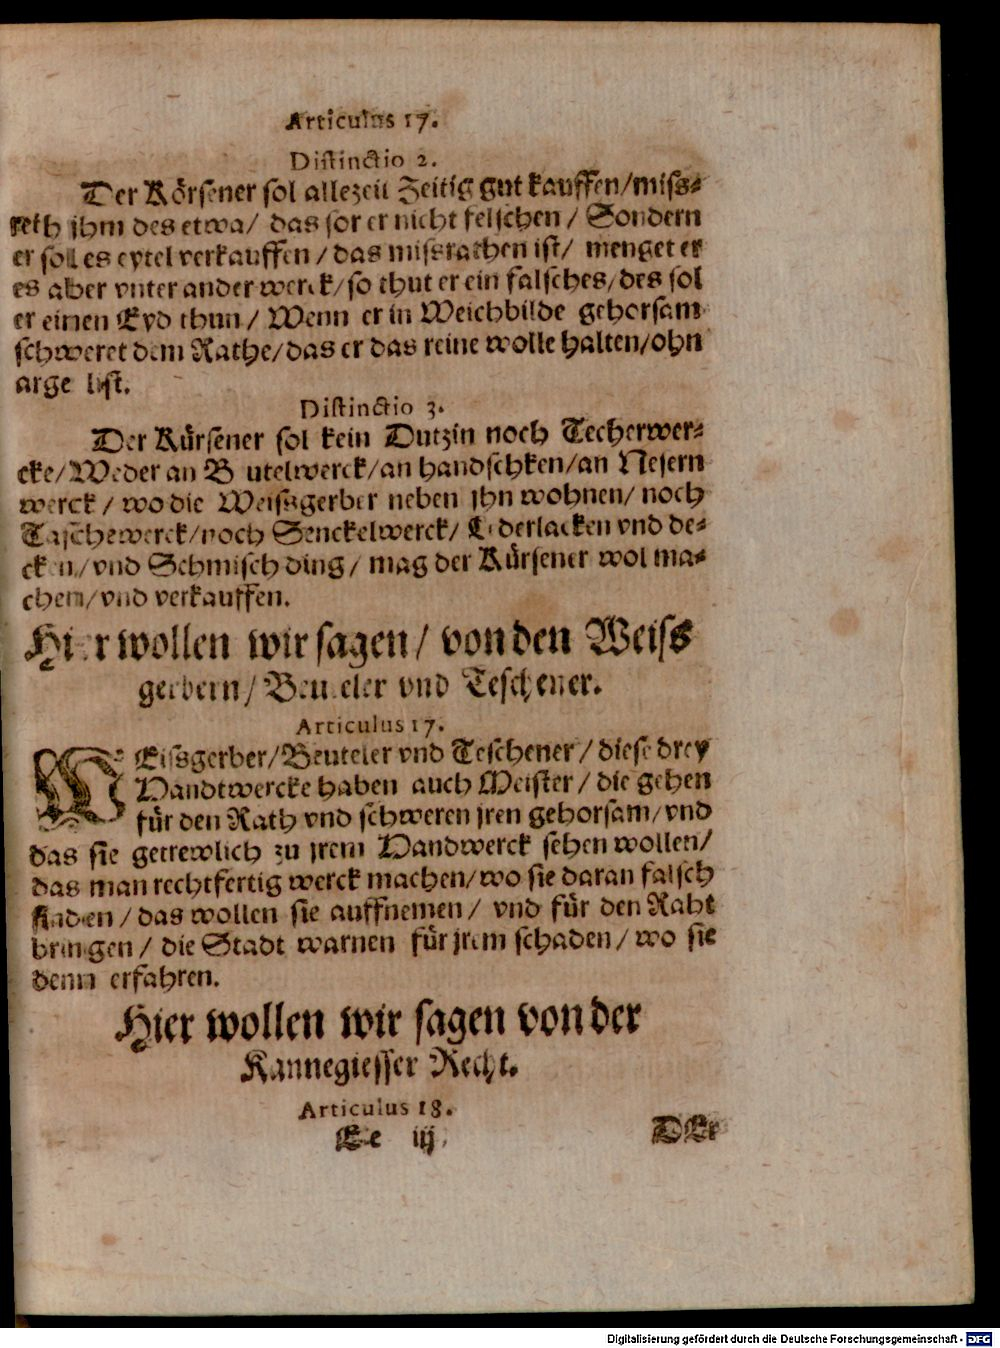 Articulus 17.
Distinctio 2.
Der Körsener sol allezeit Zeitig gut kauffen/miss-
reth jhm des etwa/ das sor er nicht felschen/ Sondern
er soll es eytel verkauffen/das missrathen ist/ menget er
es aber vnter ander werck/so thut er ein falsches/des sol
er einen Eyd thun/ Wenn er in Weichbilde gehorsam
schweret dem Rathe/das er das reine wolle halten/ohn
arge list.
Distinctio 3.
Der Kürsener sol kein Dutzin noch Techerwer-
cke/Weder an B utelwerck/an handschken/an Nesern
werck/ wo die Weissgerber neben jhn wohnen/ noch
Taschewerck/noch Senckelwerck/ Lederlacken vnd de-
cken/vnd Schmisch ding/ mag der Kürsener wol ma-
chem/vnd verkauffen.
Hier wollen wir sagen/ von den Weiss
gerbern/ Beuteler vnd Teschener.
Articulus 17.
WEissgerber/Beuteler vnd Teschener/ diese drey
Handtwercke haben auch Meister/ die gehen
für den Rath vnd schweren jren gehorsam/vnd
das sie getrewlich zu jrem Handwerck sehen wollen/
das man rechtfertig werck machen/wo sie daran falsch
finden/das wollen sie auffnemen/ vnd für den Raht
bringen/ die Stadt warnen für jrem schaden/ wo sie
denn erfahren.
Hier wollen wir sagen von der
Kannegiesser Recht.
Articulus 18.
Ee iij
DEr
Digitalisierung gefördert durch die Deutsche Forschungsgemeinschaft - DFG